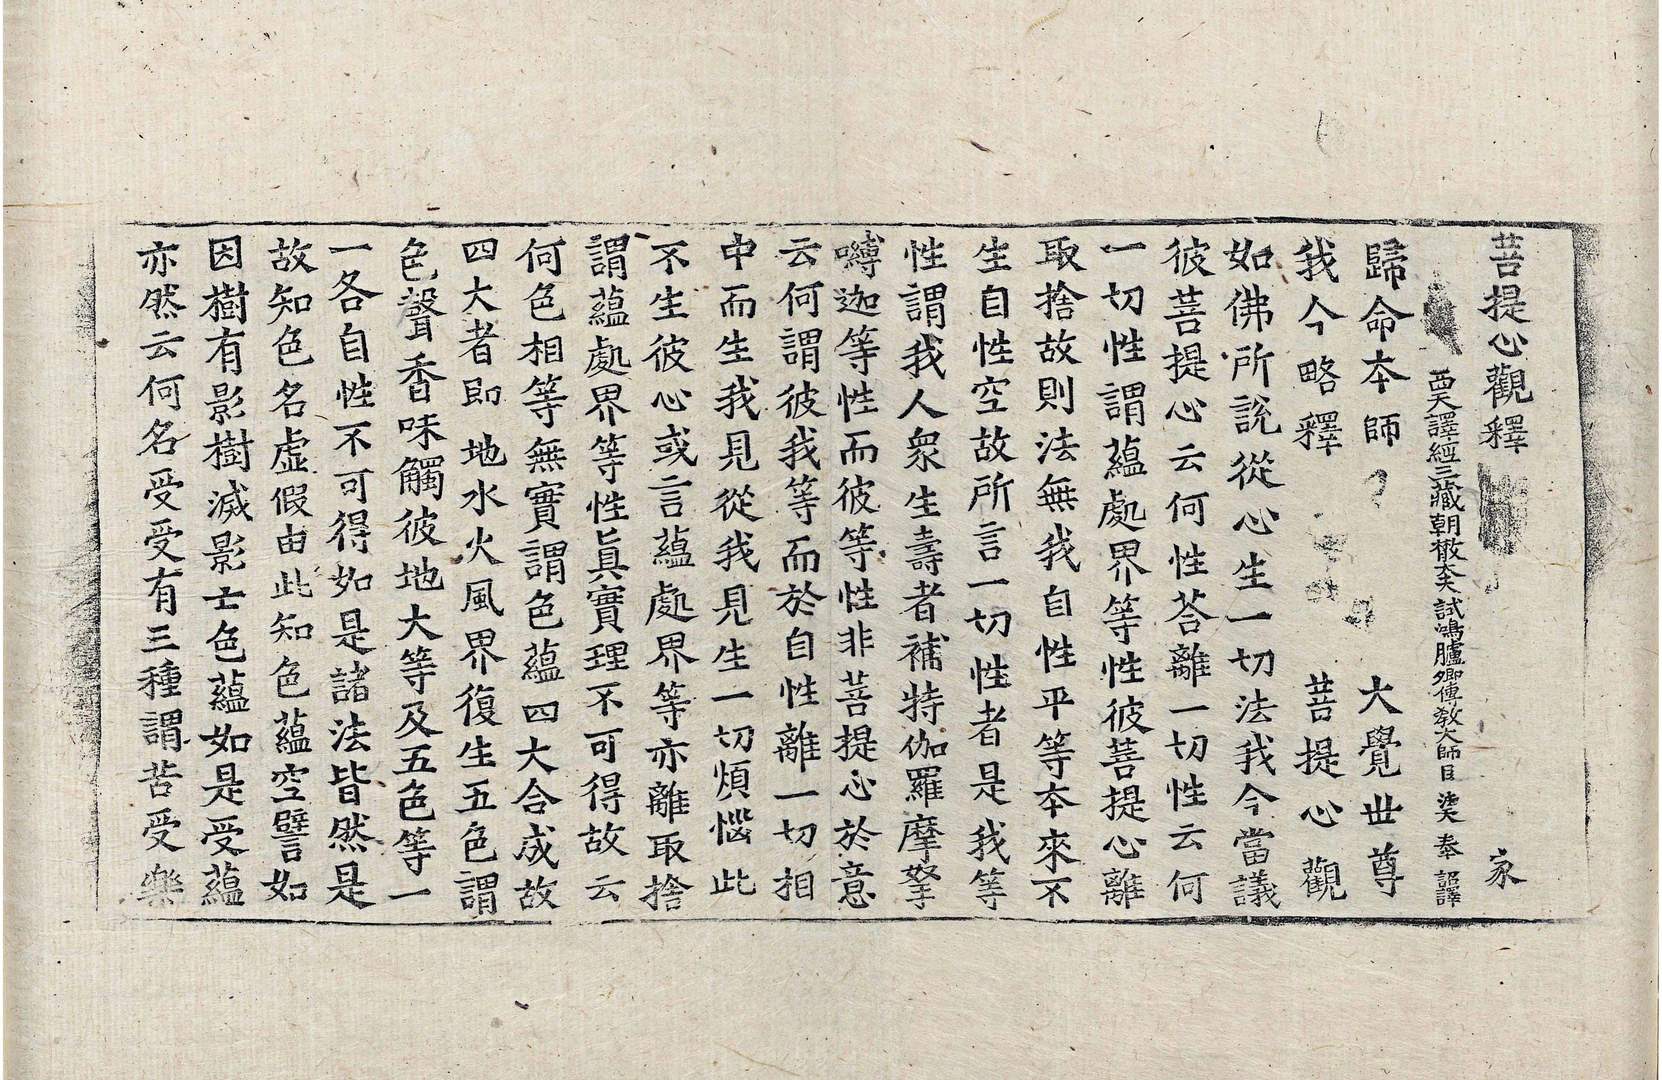 菩提心觀釋 家
西天譯經三藏朝散大夫試鴻臚卿傳教大師臣法天奉 詔譯
歸命本師 大覺世尊
我今略釋 菩提心觀
如佛所說從心生一切法我今當議
彼菩提心云何性荅離一切性云何
一切性謂蘊處界等性彼菩提心離
取捨故則法無我自性平等本來不
生自性空故所言一切性者是我等
性謂我人衆生壽者補特伽羅摩拏
嚩迦等性而彼等性非菩提心於意
云何謂彼我等而於自性離一切相
中而生我見從我見生一切煩惱此
不生彼心或言蘊處界等亦離取捨
謂蘊處界等性眞實理不可得故云
何色相等無實謂色蘊四大合成故
四大者即地水火風界復生五色謂
色聲香味觸彼地大等及五色等一
一各自性不可得如是諸法皆然是
故知色名虛假由此知色蘊空譬如
因樹有影樹滅影亡色蘊如是受蘊
亦然云何名受受有三種謂苦受樂